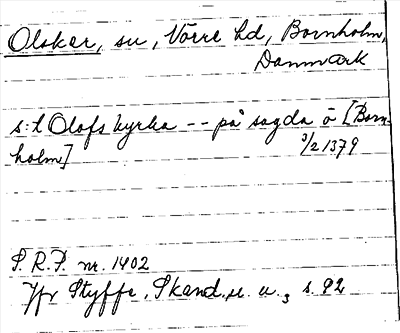 Olsker, sn, Nörre hd, Bornholm,
Danmark
s:t Olofs kyrka -- på sagda ö [Born-
holm] 3/2 1379
S.R.P. nr. 1402
Jfr Styffe, Skand. u. u., s. 92